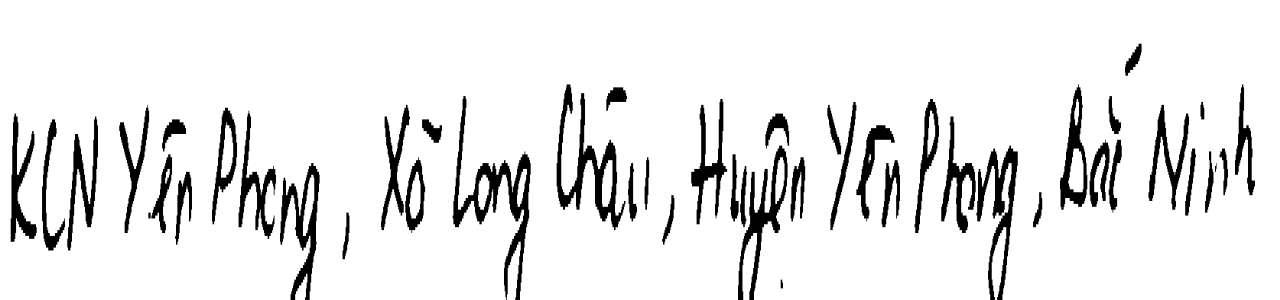 KCN Yên Phong, Xã Long Châu, Huyện Yên Phong, Bắc Ninh